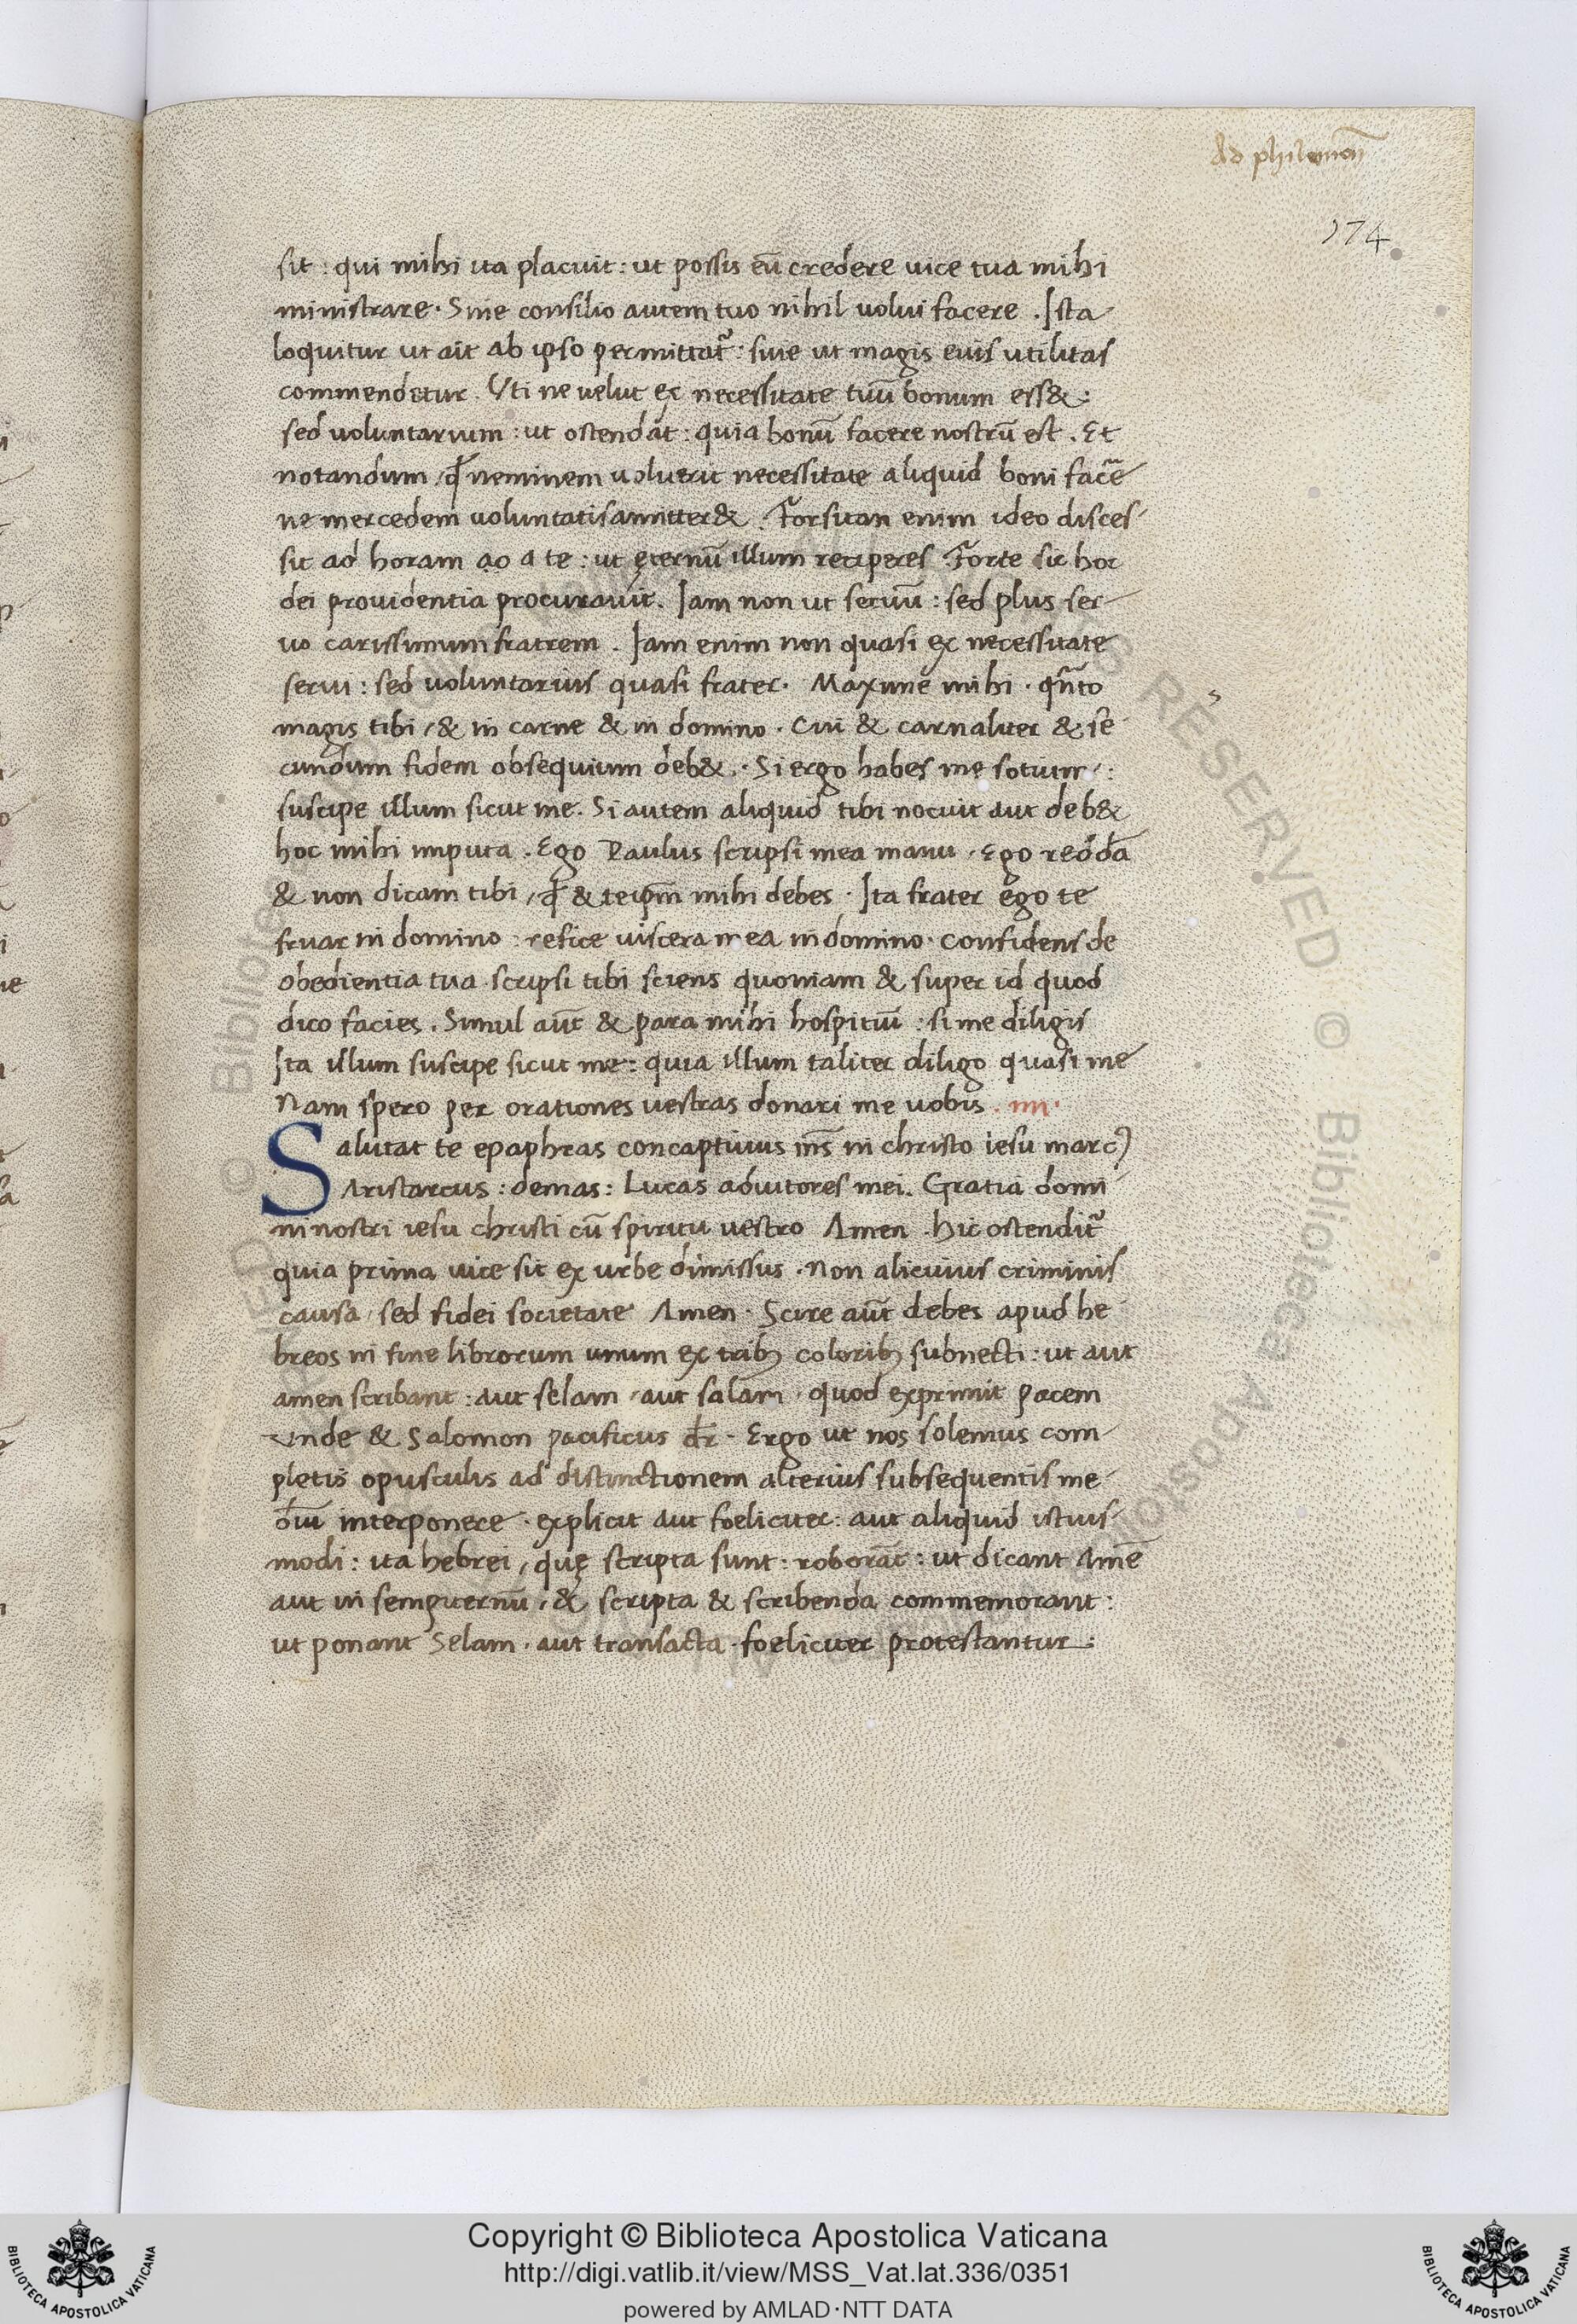 Ad philemonē
174
sit : qui mihi ita placuit : ut possis eū credere uice tua mihi
ministrare . Sine consilio autem tuo nihil uolui facere . Ista
loquitur ut aīt ab ipso permittat᷑ : siue ut magis euis utilitas
commendetur . Vti ne uelut ex necessitate tuū bonum ess& :
sed uoluntarium : ut ostendat : quia bonū facere nostrū est . Et
notandum , qd̄ neminem uoluerit necessitate aliquid boni facē
ne mercedem uoluntatis amitter& . Forsitan enim ideo disces-
sit ad horam ao a te : ut ęternū illum reciperes Forte sic hoc
dei prouidentia procurauit . Iam non ut seruū : sed plus ser-
uo carissimum fratrem . Iam enim non quasi ex necessitate
serui : sed uoluntarius quasi frater . Maxime mihi . qn̄to
magis tibi , & in carne & in domino . Cui & carnaliter & se-
cundum fidem obsequium deb& . Si ergo habes me sotium :
suscipe illum sicut me . Si autem aliquid tibi nocuit aut deb&
hoc mihi imputa . Ego Paulus scripsi mea manu . Ego reddā
& non dicam tibi , qd̄ & teip̄m mihi debes . Ita frater ego te
fruar in domino : refice uiscera mea in domino . confidens de
obedientia tua scripsi tibi sciens quoniam & super id quod
dico facies . Simul aūt & para mihi hospitiū : si me diligis
Ita illum suscipe sicut me : quia illum taliter diligo quasi me
Nam spero per orationes uestras donari me uobis . iiii .
Salutat te epaphras concaptiuus m̄s in christo iesu marcꝯ
Aristarcus : demas : Lucas adiutores mei . Gratia domi-
ni nostri iesu christi cū spiritu uestro Amen . Hic ostendit᷑
quia prima uice sit ex urbe dimissus . Non alicuius criminis
causa , sed fidei societate Amen . Scire aūt debes apud he-
breos in fine librorum unum ex tribꝫ coloribꝫ subnecti : ut aut
amen scribant : aut selam , aut salam , quod exprimit pacem
Vnde & Salomon pacificus dr̄ . Ergo ut nos solemus com-
pletis opusculis ad distinctionem alterius subsequentis me-
diū interponere . explicit aut foeliciter : aut aliquid istius-
modi : ita hebrei , quę scripta sunt : roborāt : ut dicant Amē
aut in sempiternū , & scripta & scribenda commemorant :
ut ponant Selam . aut transacta foeliciter protestantur :
Copyright © Biblioteca Apostolica Vaticana
http://digi.vatlib.it/view/MSS_Vat.lat.336/0351
powered by AMLAD·NTT DATA
BIBLIOTECA APOSTOLICA VATICANA
BIBLIOTECA APOSTOLICA VATICANA